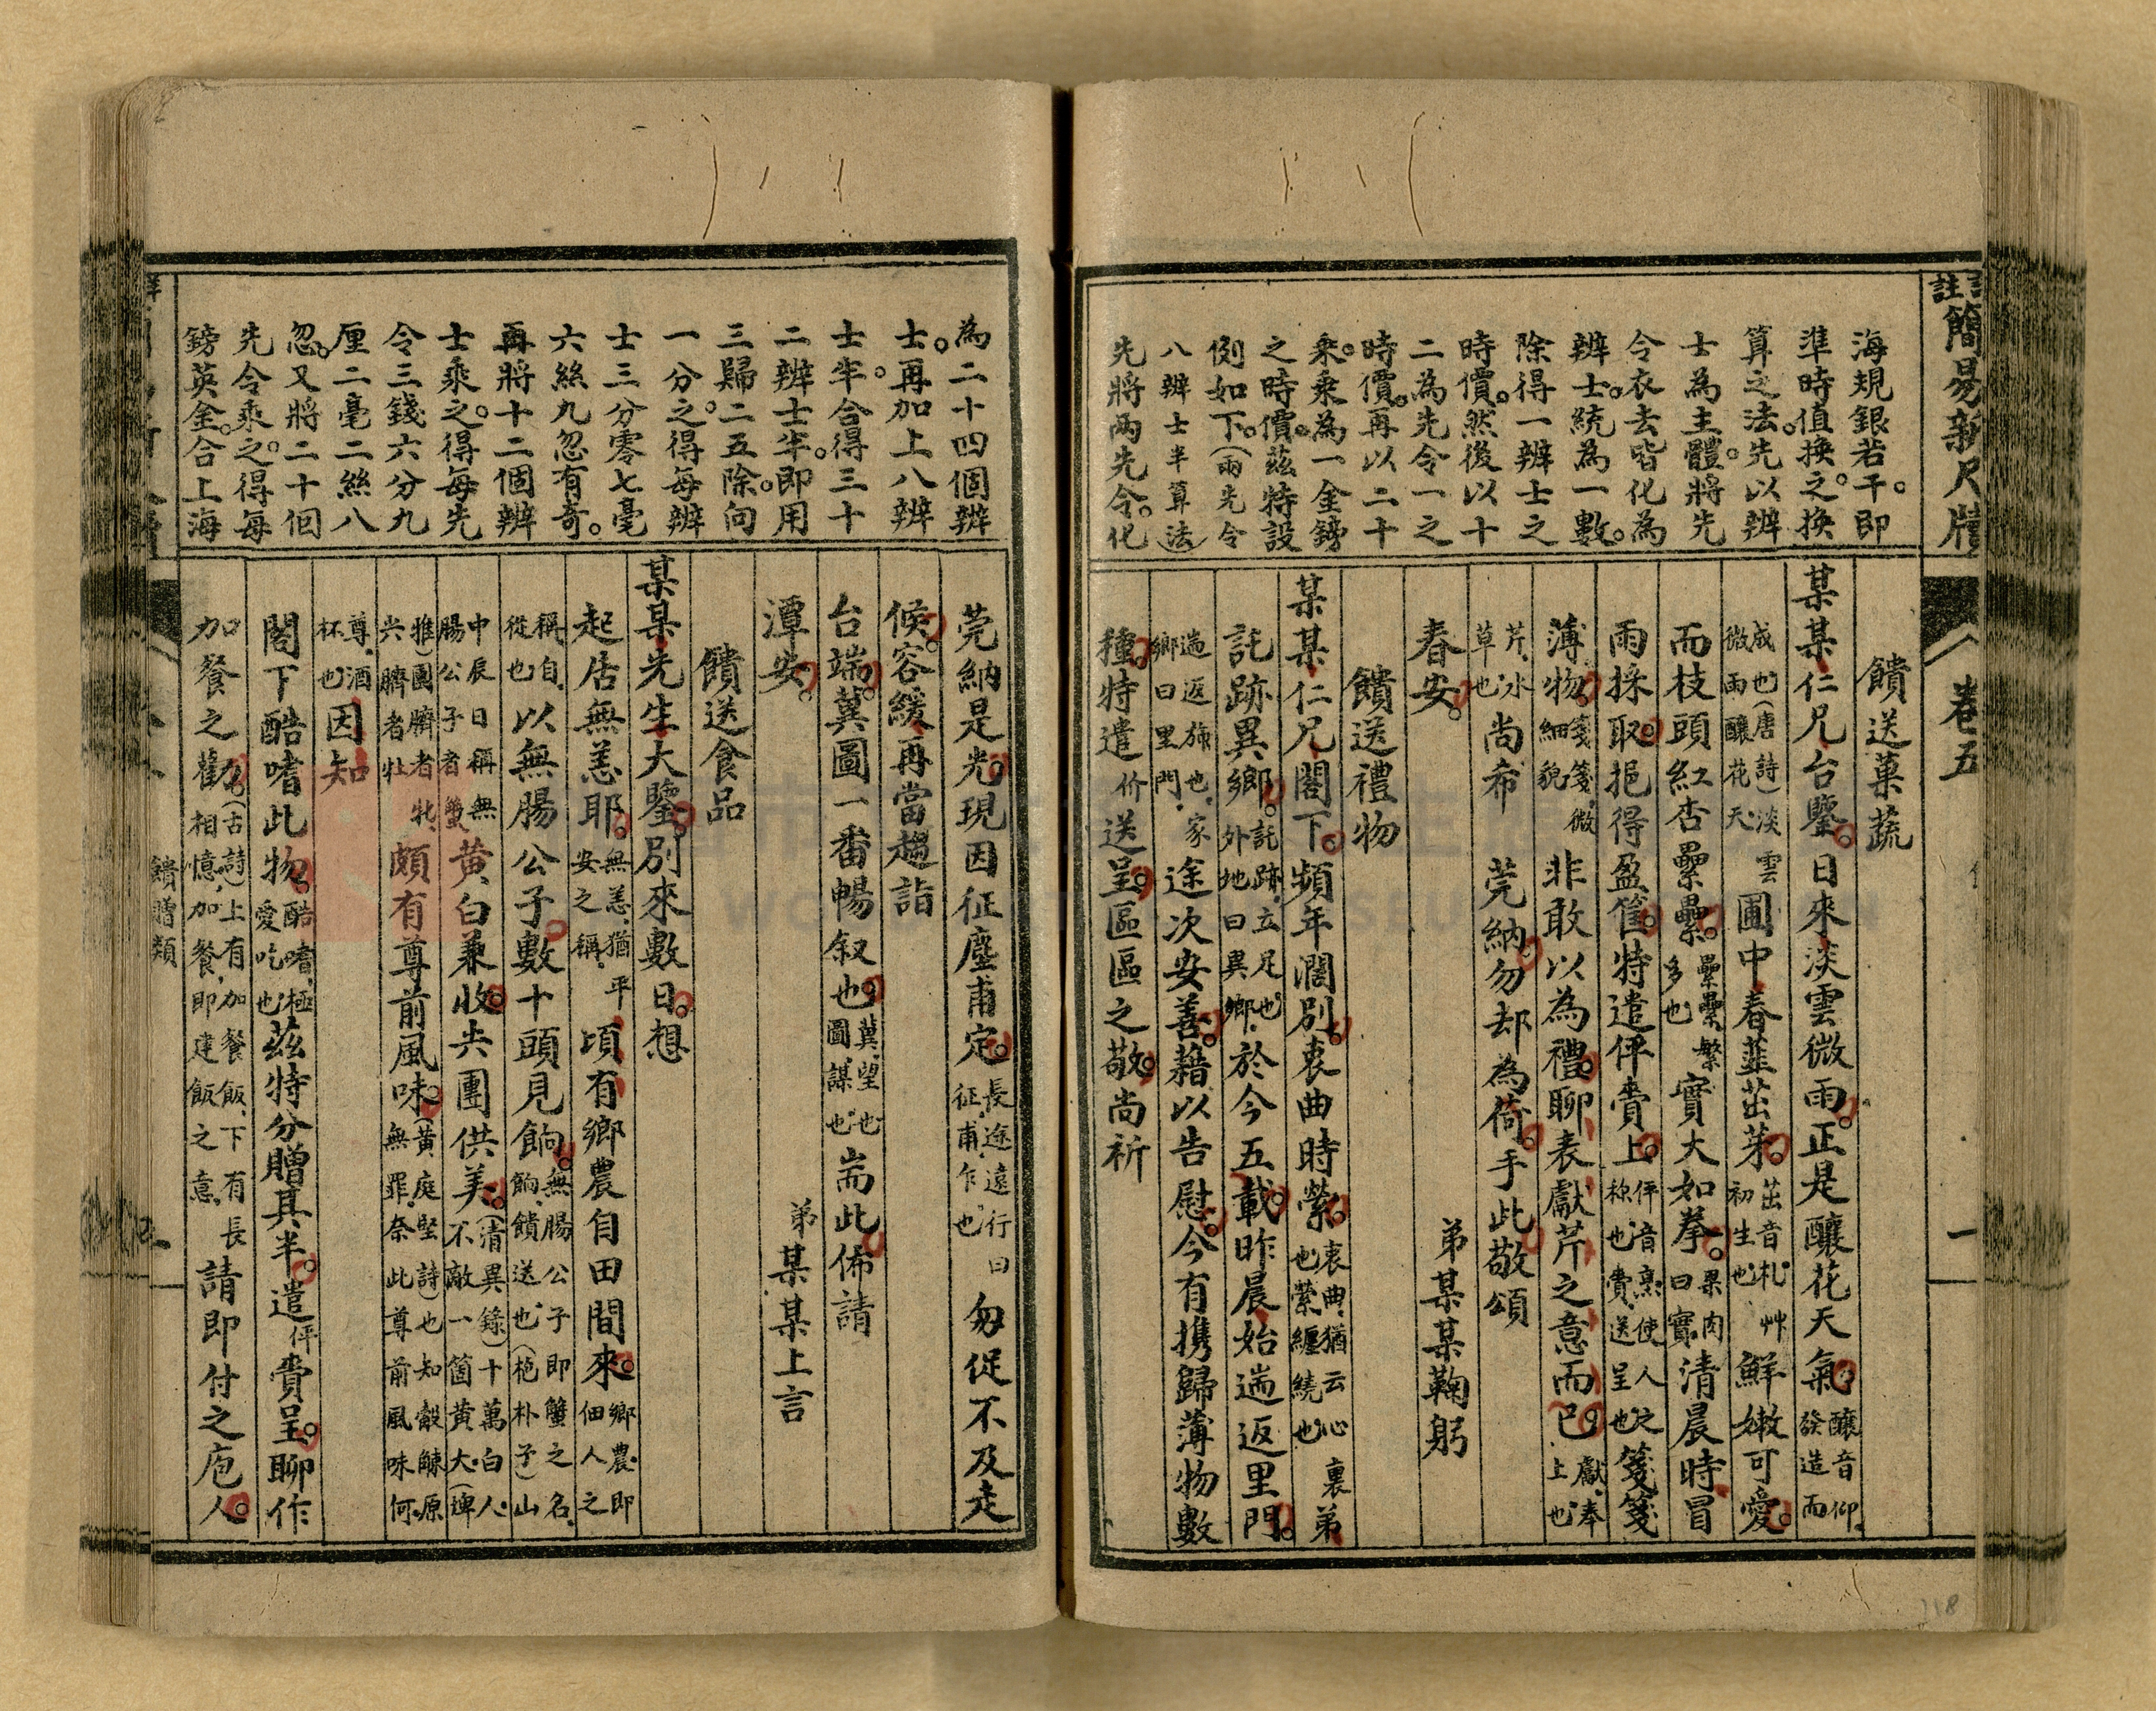 註簡易新尺牘
卷五
海規銀若干即
準時值換之換
算之法先以辦
士為主體將先
令衣去皆化為
辨士統為一數
除得一辨士之
時價然後以十
二為先令一之
時價再以二十
乘乘為一金鎊
之時價茲特設
例如下(兩先令
八辨士半算法
先將兩先令化
饋送菓蔬
某某仁兄台鑒日來淡雲微雨正是釀花天氣釀音仰發造而
成也(唐詩)淡雲微雨釀花天圃中春韮茁芽茁音札艸初生也鮮嫩可愛
而枝頭紅杏纍纍纍纍繁多也實大如拳果肉曰實清晨時冒
雨採取挹得盈筐特遣伻賫上伻音烹使人之称也賫送呈也箋箋
薄物箋箋微細貌非敢以為禮聊表獻芹之意而已獻奉上也
芹水草也尚希莞納勿却為荷手此敬頌
春安
弟某某鞠躬
饋送禮物
某某仁兄閣下頻年濶別衷曲時縈衷曲猶云心裏也縈纏繞也弟
託跡異鄉託跡立足也外地曰異鄉於今五載昨晨始遄返里門
遄返旆也家鄉曰里門途次安善藉以告慰今有携歸薄物數
種特遣价送呈區區之敬尚祈
為二十四個辨
士再加上八辨
士半合得三十
二辨士半即用
三歸二五除向
一分之得每辨
士三分零七毫
六絲九忽有奇
再將十二個辨
士乘之得每先
令三錢六分九
厘二毫二絲八
忽又將二十個
先令乘之得每
鎊英金合上海
莞納是光現因征塵甫定長途遠行曰征甫乍也匆促不及走
候容緩再當趨詣
台端冀圖一番暢叙也冀望也圖謀也耑此佈請
潭安
弟某某上言
饋送食品
某某先生大鑒別來數日想
起居無恙耶無恙猶平安之稱頃有鄉農自田間來鄉農即佃人之
稱自從也以無腸公子數十頭見餉無腸公子即蟹之名餉饋送也(枹朴子)山
中辰日稱無腸公子者蟹黄白兼收尖團供美(清異錄)十萬白人不敵一箇黄大(埤
雅)團臍者牝尖臍者牡頗有尊前風味(黄庭堅詩)也知觳觫原無罪奈此尊前風味何
尊酒杯也因知
閣下酷嗜此物酷嗜極愛吃也茲特分贈其半遣伻賫呈聊作
加餐之勸(古詩)上有加餐飯下有長相憶加餐即建飯之意請即付之庖人
饋贈類